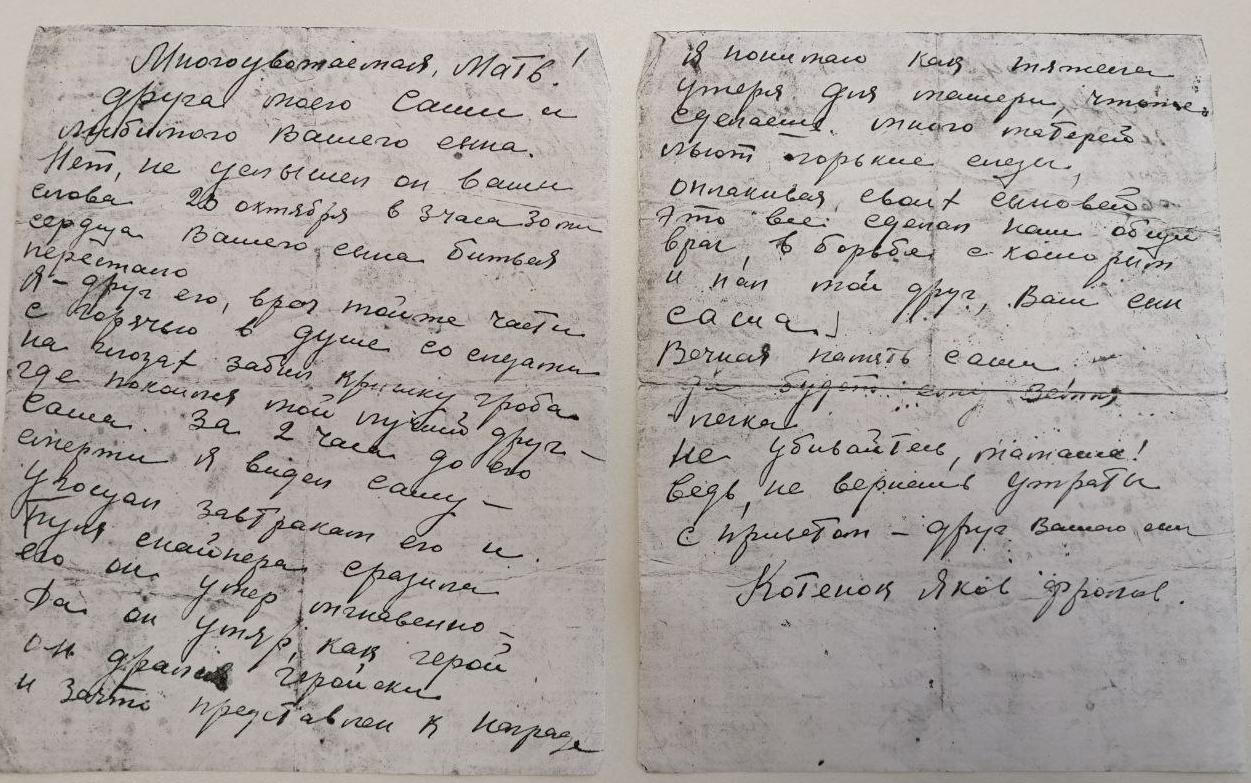 Многоуважаемая, Мать!
друга моего Саши и
любимого Вашего сына.
Нет, не услышел он ваши
слова 20 октября в 3 часа 30 м
сердца Вашего сына биться
перестало
Я - друг его, врач той же части
с горячью в душе со слезами
на глозах забил крышку гроба
где покоится мой лучший друг -
Саша. За 2 часа до его
смерти я видел Сашу -
угощал завтракам его и
Пуля снайпера сразила
его он умер мгновенно -
Да он умяр, как герой
он дрался геройски
и за что представлен к награде
Я понимаю как тяжела
утеря для матери, что же
сделаешь много матерей
льют горькие слезы,
оплакивая своих сыновей
Это все сделал наш общий
враг, в борьбе с которым
и пал мой друг, Ваш сын
Саша.
Вечная память Саши
Да будет ему земля
легка
Не убивайтесь, мамаша!
Ведь не вернешь утраты
С приветом - друг Вашего сына
Котенок Яков